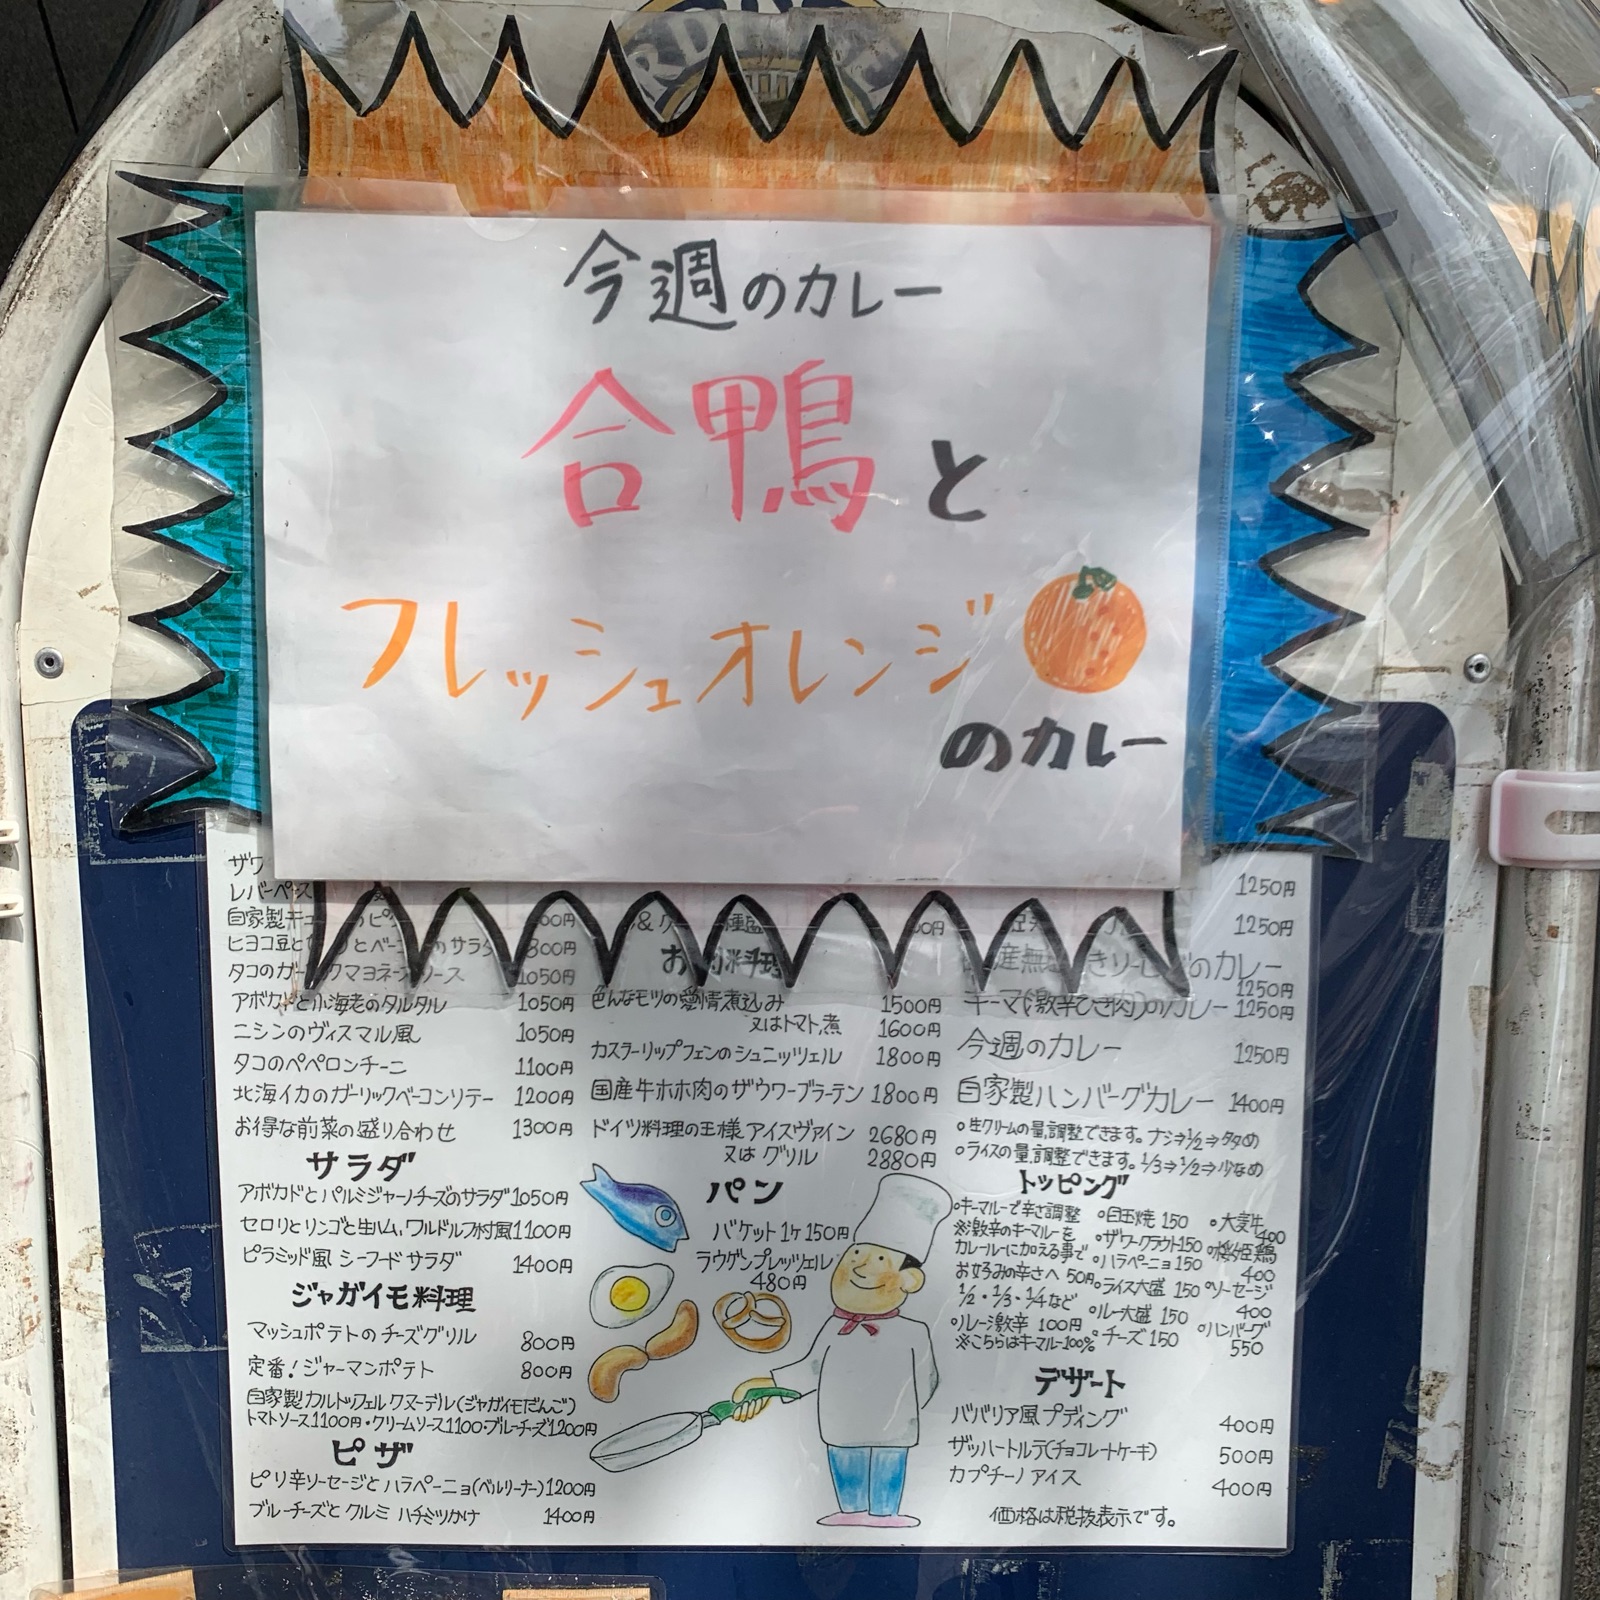 今週のカレー
合鴨と
フレッシュオレンジ
のカレー
ザワ
レバーペース
自家製チュ
ヒヨコ豆と サラダ 800円
タコのガーリックマヨネーズソース 1050円
アボカドと小海老のタルタル 1050円
ニシンのヴィスマル風 1050円
タコのペペロンチーニ 1100円
北海イカのガーリックベーコンソテー 1200円
お得な前菜の盛り合わせ 1300円
サラダ
アボカドとパルミジャーノチーズのサラダ 1050円
セロリとリンゴと生ハム、ワルドルフ村風 1100円
ピラミッド風 シーフードサラダ 1400円
ジャガイモ料理
マッシュポテトのチーズグリル 800円
定番!ジャーマンポテト 800円
自家製カルトッフェルクヌーデル(ジャガイモだんご)
トマトソース1100円・クリームソース1100・ブルーチーズ1200円
ピザ
ピリ辛ソーセージとハラペーニョ(ベルリーナー) 1200円
ブルーチーズとクルミ ハチミツかけ 1400円
お肉料理
色んなモツの愛情煮込み 1500円
又はトマト煮 1600円
カスラーリップフェンのシュニッツェル 1800円
国産牛ホホ肉のザウワーブラーテン 1800円
ドイツ料理の王様アイスヴァイン 2680円
又はグリル 2880円
パン
バケット1ヶ150円
ラウゲンプレッツェル
480円
1250円
1250円
のカレー
1250円
キーマ(激辛ひき肉)のカレー 1250円
今週のカレー 1250円
自家製ハンバーグカレー 1400円
○生クリームの量、調整できます。ナシ⇒1/2⇒多め
○ライスの量、調整できます。1/3⇒1/2⇒少なめ
トッピング
○キーマルーで辛さ調整
※激辛のキーマルーを
カレールーに加える事で
お好みの辛さへ 50円
1/2・1/3・1/4など
○ルー激辛 100円
※こちらはキーマルー100%
○目玉焼 150
○ザワークラウト150
○ハラペーニョ150
○ライス大盛 150
○ルー大盛 150
○チーズ150
○大麦牛
400
○桜姫鶏
400
○ソーセージ
400
○ハンバーグ
550
デザート
ババリア風プディング 400円
ザッハートルテ(チョコレートケーキ) 500円
カプチーノアイス 400円
価格は税抜表示です。